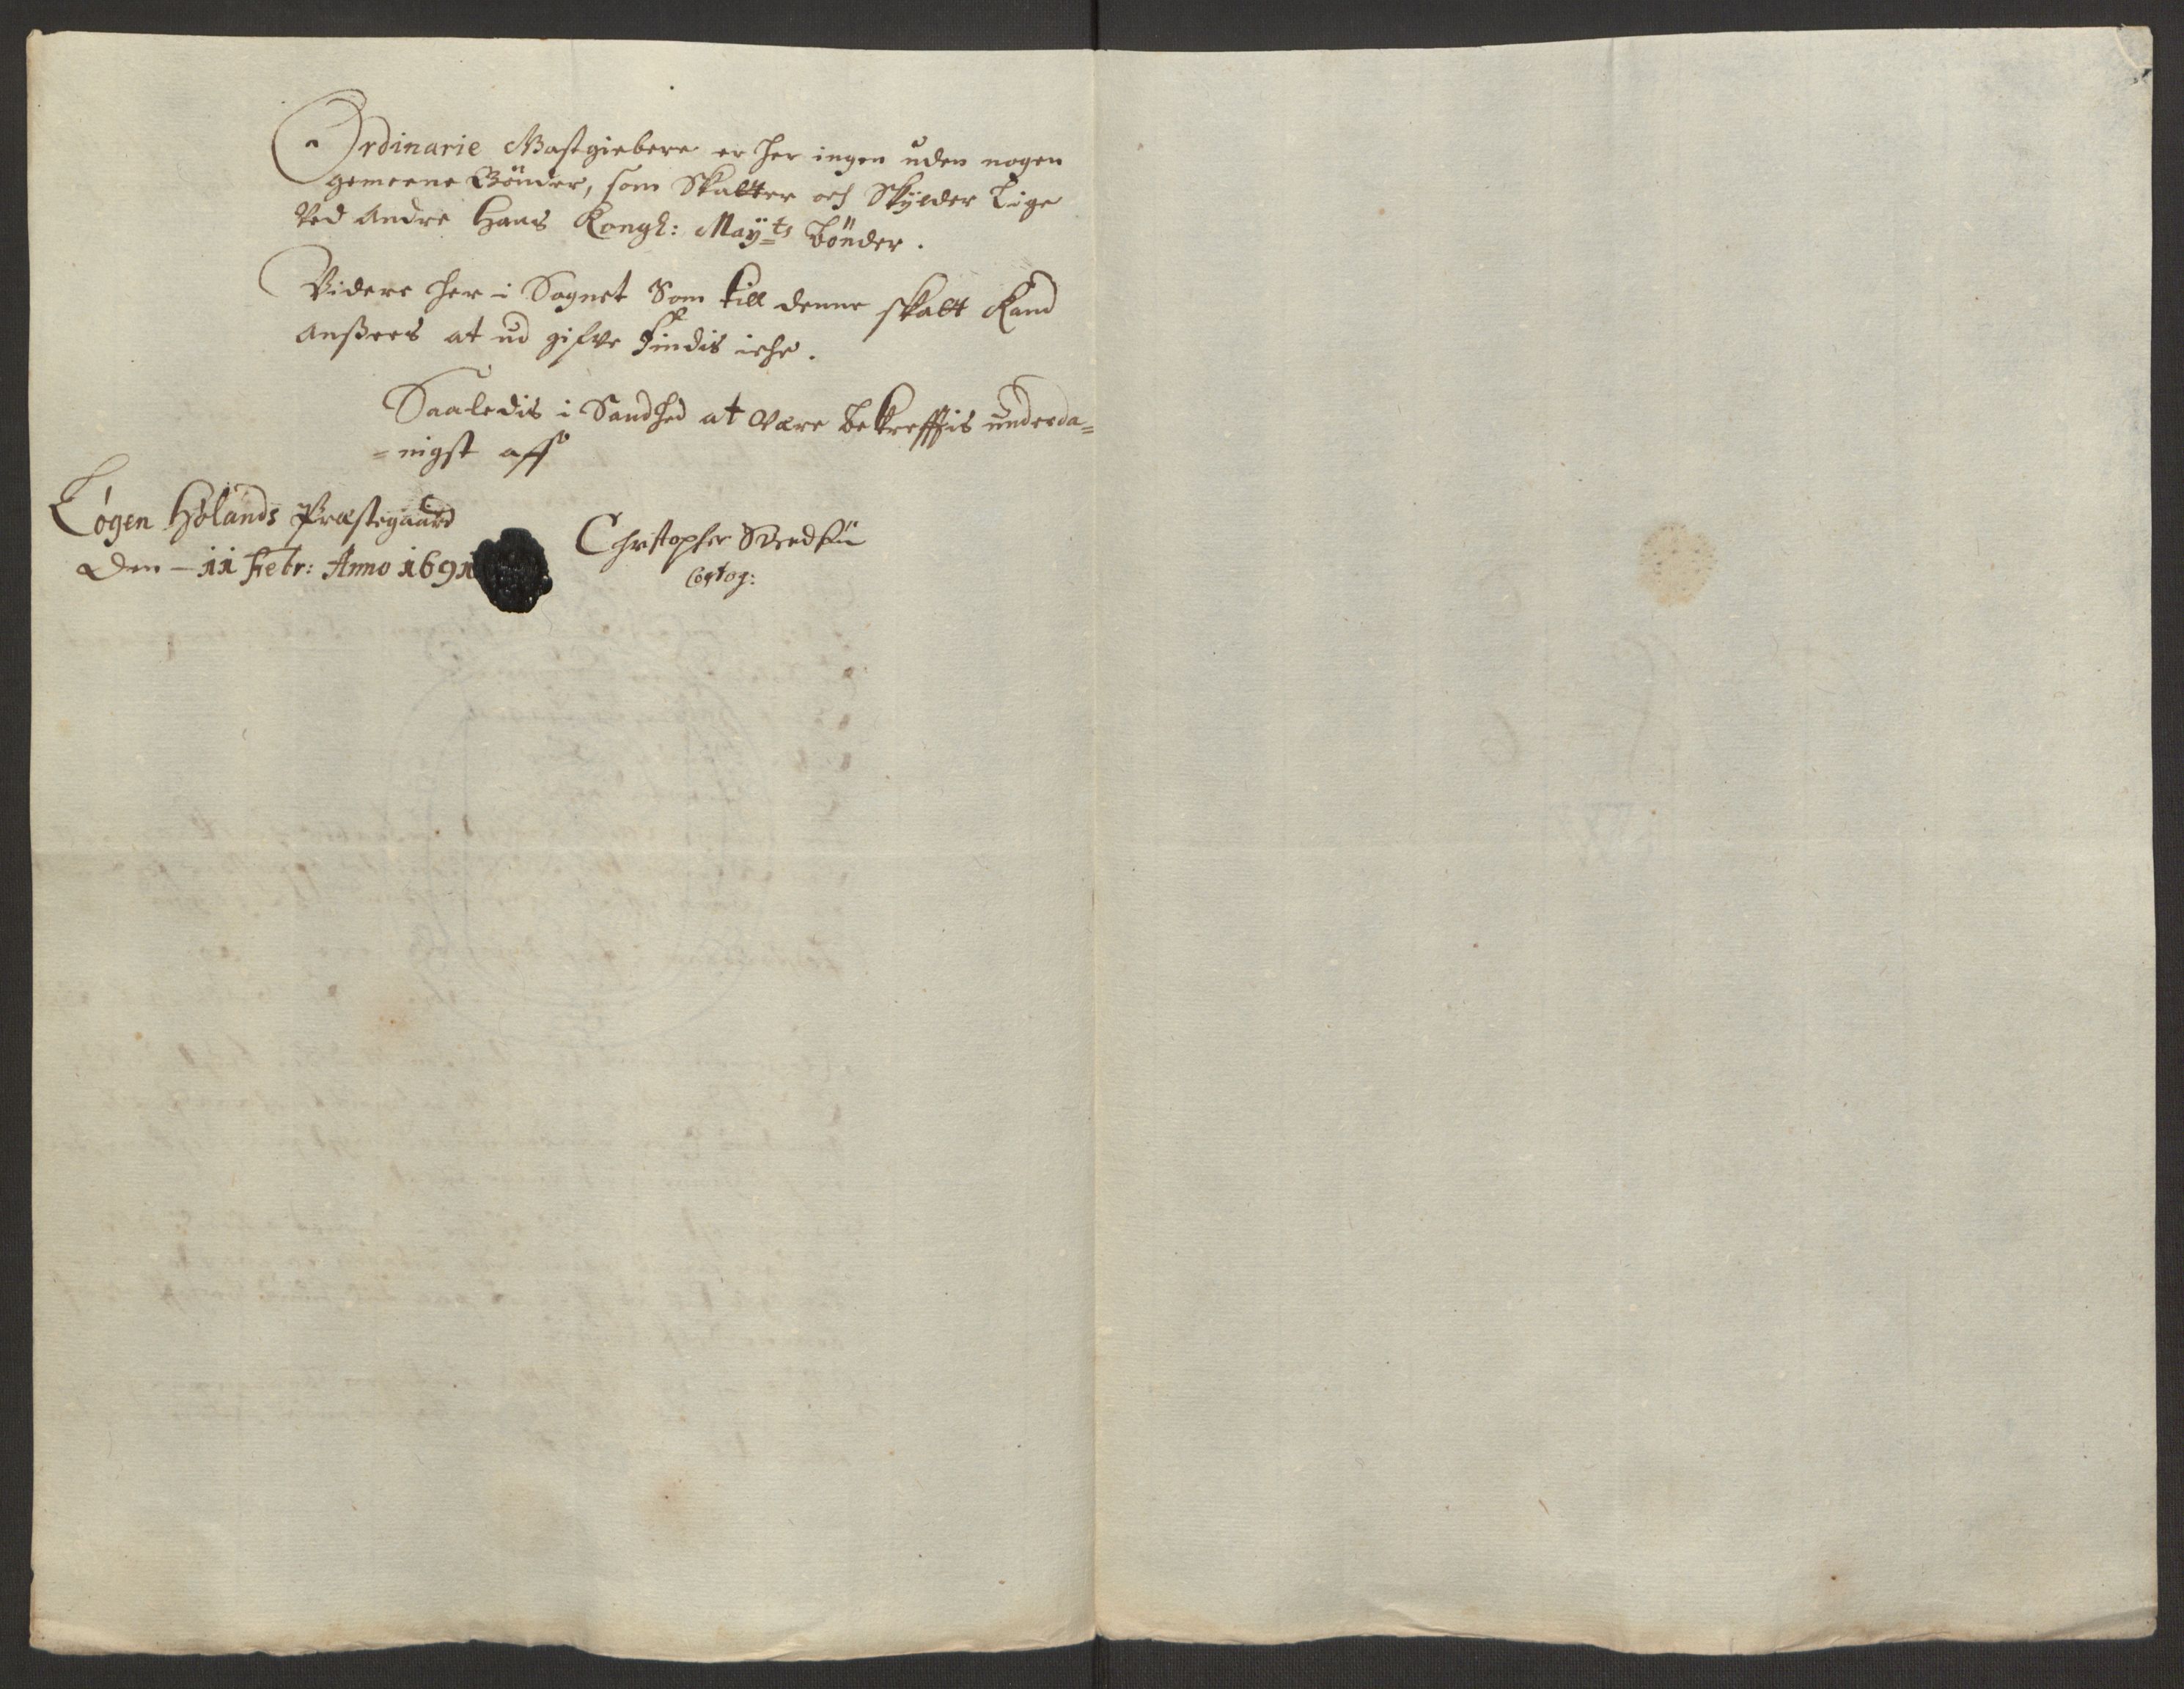 Ordinarie Gastgiebere er her ingen uden nogen
gemeene Bönder, som Skatter och Skylder Lige
Ved Andre Hans Kongl: Mayts Bönder.
Videre her i Sognet Som till denne skatt Kand
Ansees at ud gifve Findis iche.
Saaledis i Sandhed at Være bekrefftis underda=
=nigst aff
Løgen Hølands Præstegaard
Den – 11 Febr: Anno 1691
Christopher